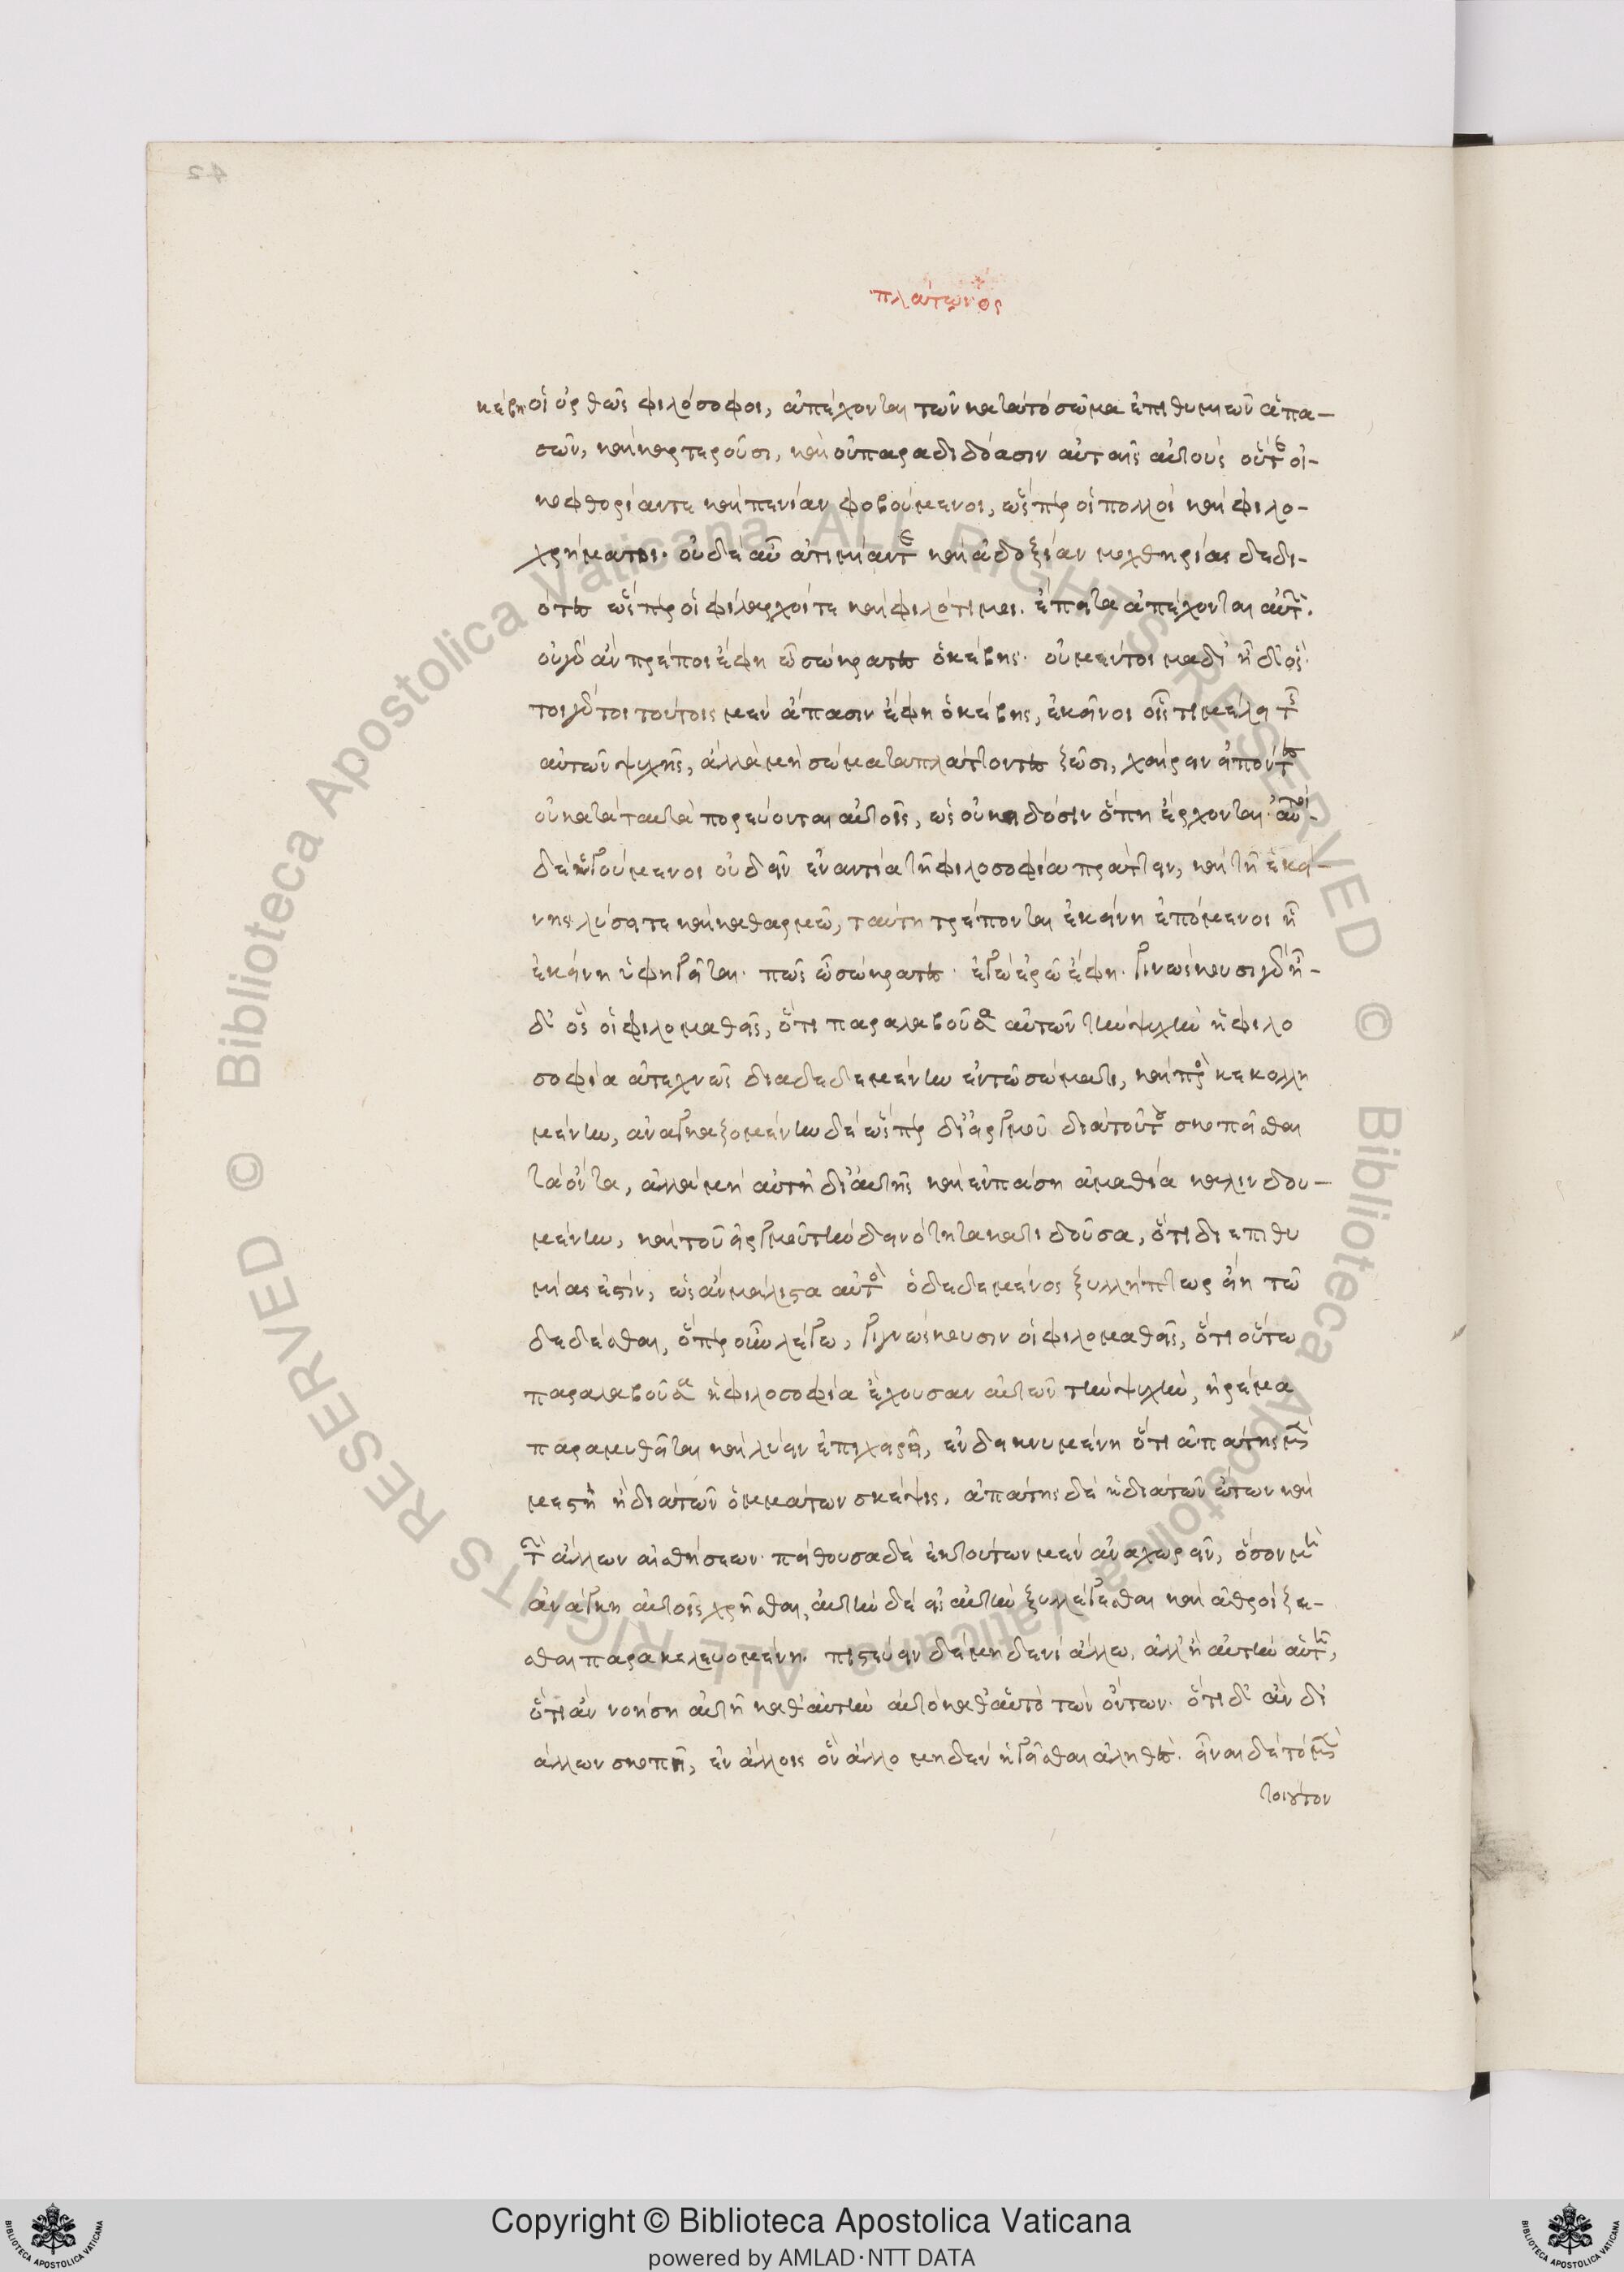 42
πλάτωνος
κέβης οἱ ὀρθῶς φιλόσοφοι, ἀπέχονται τῶν κατὰ τὸ σῶμα ἐπιθυμιῶν ἁπα-
σῶν, καὶ καρτεροῦσι, καὶ οὐ παραδιδόασιν αὐταῖς αὑτοὺς οὔτε οἰ-
κοφθορίαν τε καὶ πενίαν φοβούμενοι, ὥσπερ οἱ πολλοὶ καὶ φιλο-
χρήματοι. οὐδὲ αὖ ἀτιμίαν τε καὶ ἀδοξίαν μοχθηρίας δεδι-
ότες ὥσπερ οἱ φίλαρχοί τε καὶ φιλότιμοι. ἔπειτα ἀπέχονται αὐτῶν.
οὐ γὰρ ἂν πρέποι ἔφη ὦ σώκρατες ὁ κέβης. οὐ μέντοι μὰ δί' ἦ δ' ὅς.
τοιγάρτοι τούτοις μὲν ἅπασιν ἔφη ὁ κέβης, ἐκεῖνοι οἷς τι μέλει τῆς
αὑτῶν ψυχῆς, ἀλλὰ μὴ σώματα πλάττοντες ζῶσι, χαίρειν εἰπόντες
οὐ κατὰ ταὐτὰ πορεύονται αὐτοῖς, ὡς οὐκ εἰδόσιν ὅπη ἔρχονται. αὐτοὶ
δὲ ἡγούμενοι οὐ δεῖν ἐναντία τῇ φιλοσοφία πράττειν, καὶ τῇ ἐκεί-
νης λύσει τε καὶ καθαρμῶ, ταύτη τρέπονται ἐκείνη ἑπόμενοι ἧ
ἐκείνη ὑφηγεῖται. πῶς ὦ σώκρατες. ἐγὼ ἐρῶ ἔφη. γινώσκουσι γὰρ ἦ-
δ' ὃς οἱ φιλομαθεῖς, ὅτι παραλαβοῦσα αὐτῶν τὴν ψυχὴν ἡ φιλο
σοφία ἀτεχνῶς διαδεδεμένην ἐν τῶ σώματι, καὶ προσκεκολλη
μένην, ἀναγκαζομένην δὲ ὥσπερ δι' εἱργμοῦ διὰ τούτου σκοπεῖσθαι
τὰ ὄντα, ἀλλὰ μὴ αὐτὴ δι' αὑτῆς καὶ ἐν πάση ἀμαθία καλινδου-
μένην, καὶ τοῦ εἱργμοῦ τὴν δεινότητα κατιδοῦσα, ὅτι δι' ἐπιθυ
μίας ἐστὶν, ὡς ἂν μάλιστα αὐτὸς ὁ δεδεμένος ξυλλήπτωρ εἴη τῶ
δεδέσθαι, ὅπερ οὖν λέγω, γιγνώσκουσιν οἱ φιλομαθεῖς, ὅτι οὕτω
παραλαβοῦσα ἡ φιλοσοφία ἔχουσαν αὐτῶν τὴν ψυχὴν, ἠρέμα
παραμυθεῖται καὶ λύειν ἐπιχειρεῖ, ἐνδεικνυμένη ὅτι ἀπάτης μὲν
μεστὴ ἡ διὰ τῶν ὀμμάτων σκέψις, ἀπάτης δὲ ἡ διὰ τῶν ὤτων καὶ
τῶν ἄλλων αἰσθήσεων. πείθουσα δὲ ἐκ τούτων μὲν ἀναχωρεῖν, ὅσον μὴ
ἀνάγκη αὐτοῖς χρῆσθαι, αὐτὴν δὲ εἰς αὑτὴν ξυλλέγεσθαι καὶ ἀθροίζε-
σθαι παρακελευομένη. πιστεύειν δὲ μηδενὶ ἄλλω, ἀλλ' ἢ αὐτὴν αὑτῇ,
ὅτι ἂν νοήση αὐτὴ καθ' αὑτὴν αὐτὸ καθ' αὑτὸ τῶν ὄντων. ὅτι δ' ἂν δι'
ἄλλων σκοπῇ, ἐν ἄλλοις ὂν ἄλλο μηδὲν ἡγεῖσθαι ἀληθές. εἶναι δὲ τὸ μὲν
τοιοῦτον
Copyright © Biblioteca Apostolica Vaticana
powered by AMLAD·NTT DATA